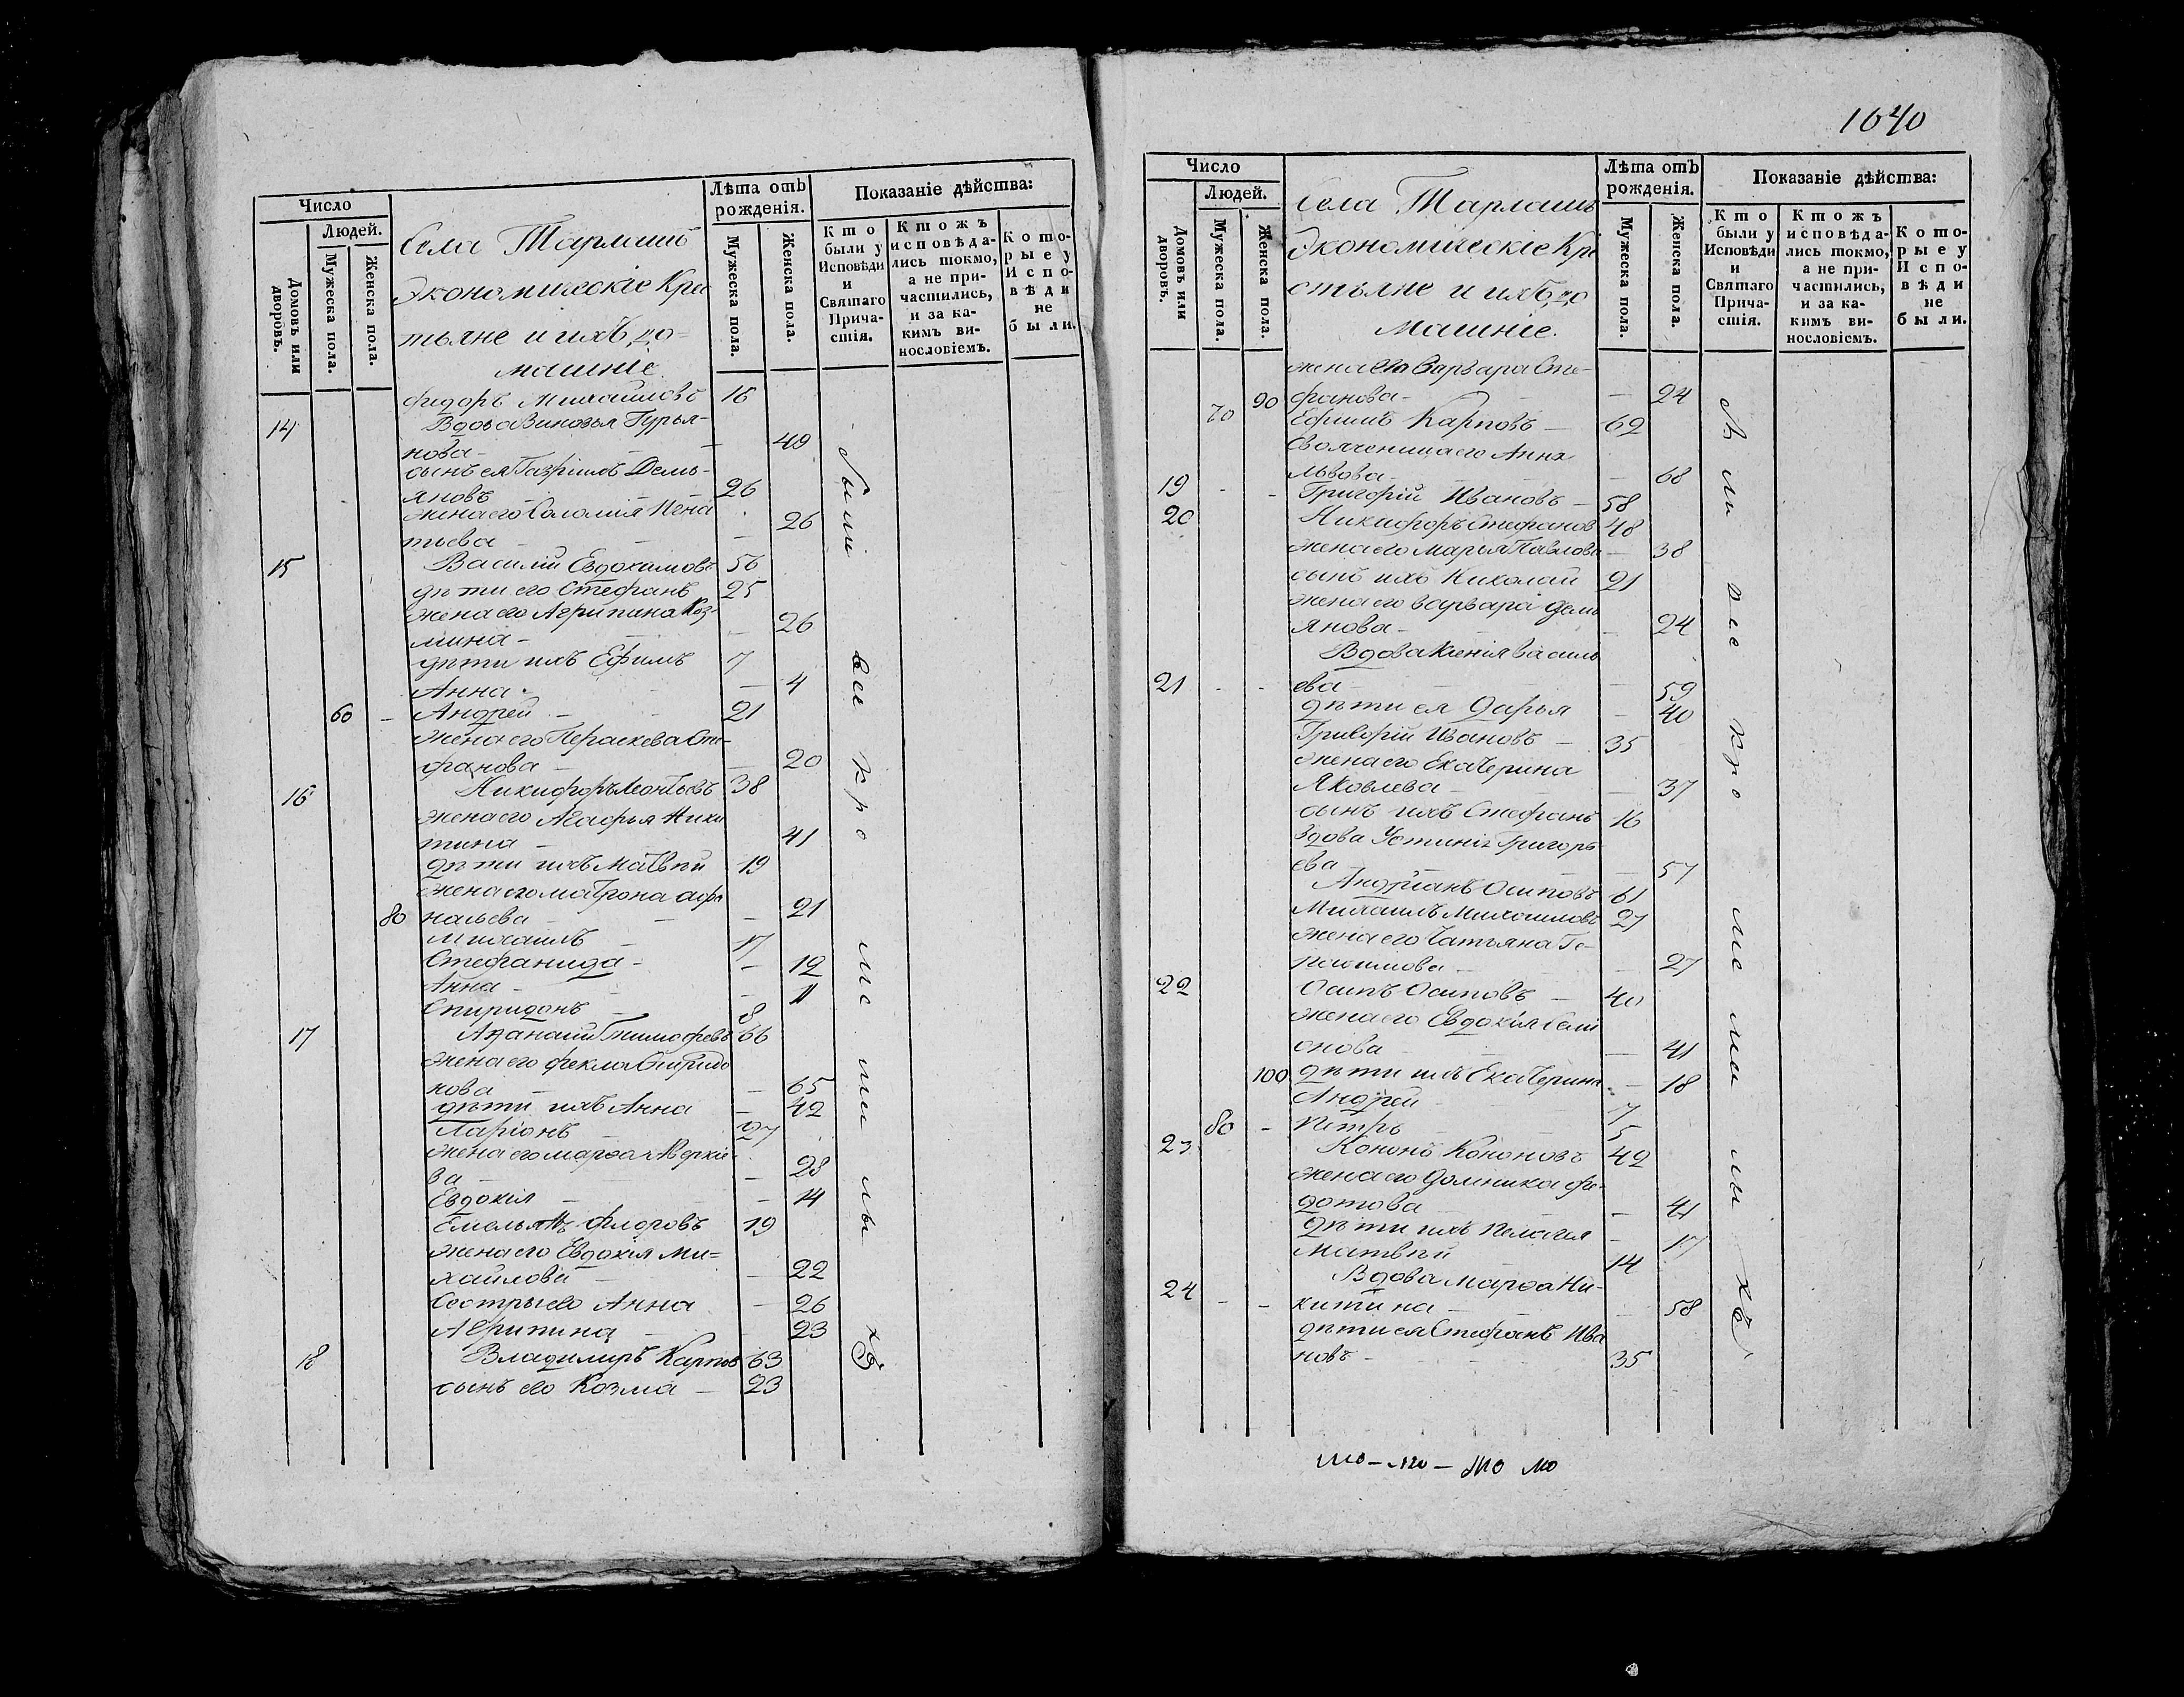 Число
Людей.
Домовъ или дворовъ.
Мужеска пола.
Женска пола.
Села Тарлашъ
Экономическіе Крес
тьяне и ихъ до=
машніе.
Лѣта отъ рожденія.
Мужеска пола.
Женска пола.
Показаніе дѣйства:
Кто были у Исповѣди и Святаго Причастія.
Ктожъ исповѣдались токмо, а не причастились, и за какимъ винословіемъ.
Которые у Исповѣди не были.
Федоръ Михайловъ 16
14 Вдова Зиновья Гурья-
нова - 49
сынъ ея Гаврiилъ Демь-
яновъ 26
жена его Соломія Игна
тьева - 26
15 Василій Евдокимовъ 56
дѣти его Стефанъ 25
жена его Агрипина Коз-
мина - 26
дѣти ихъ Ефимъ 7
Анна - 4
60 - Андрей - 21
жена его Параскева Сте-
фанова - 20
16 Никифоръ Леонтьевъ 38
жена его Агафья Ники
тина - 41
дѣти ихъ Матвѣй 19
жена его Матрона Афа
80 насьева - 21
Михаилъ 17
Стефанида - 12
Анна - 11
Спиридонъ 8
17 Афанасій Тимофеевъ 66
жена его Фекла Спиридо
нова - 65
дѣти ихъ Анна - 42
Ларіонъ 27
жена его Марѳа Аверкіе-
ва - 28
Евдокія - 14
Емельянъ Федоровъ 19
жена его Евдокія Ми=
хайлова - 22
Сестры его Анна - 26
Агрипина - 23
18 Владимиръ Карповъ 63
сынъ его Козма - 23
были
все
кро
ме
ма
лы
хъ
1640
Число
Людей.
Домовъ или дворовъ.
Мужеска пола.
Женска пола.
Села Тарлашъ
Экономическіе Кре
стьяне и ихъ до
машніе.
Лѣта отъ рожденія.
Мужеска пола.
Женска пола.
Показаніе дѣйства:
Кто были у Исповѣди и Святаго Причастія.
Ктожъ исповѣдались токмо, а не причастились, и за какимъ винословіемъ.
Которые у Исповѣди не были.
жена его Варвара Сте-
90 фанова - 24
70 Ефимъ Карповъ - 62
его Анна
Львова - 68
19 - - Григорій Ивановъ - 58
20 Никифоръ Стефановъ 48
жена его Марья Павлова - 38
сынъ ихъ Николай 21
жена его Варвара Демь
янова - 24
Вдова Ксенія Василь
21 - - ева - 59
дѣти ея Дарья - 40
Григорій Ивановъ - 35
жена его Екатерина
Яковлева - 37
сынъ ихъ Стефанъ 16
вдова Устинія Григорь
ева - 57
Андріанъ Осиповъ 61
Михаилъ Михайловъ 27
жена его Татьяна Ге-
расимова - 27
22 Осипъ Осиповъ - 40
жена его Евдокія Сими
онова - 41
100 дѣти ихъ Екатерина - 18
Андрей 7
80 - Петръ 5
23 Кононъ Кононовъ 42
жена его Домника Фе-
дотова - 41
дѣти ихъ Пелагея - 17
Матвѣй 14
24 Вдова Марѳа Ни-
- - китина - 58
дѣти ея Стефанъ Ива
новъ - 35
кро
ме
ма
лы
хъ